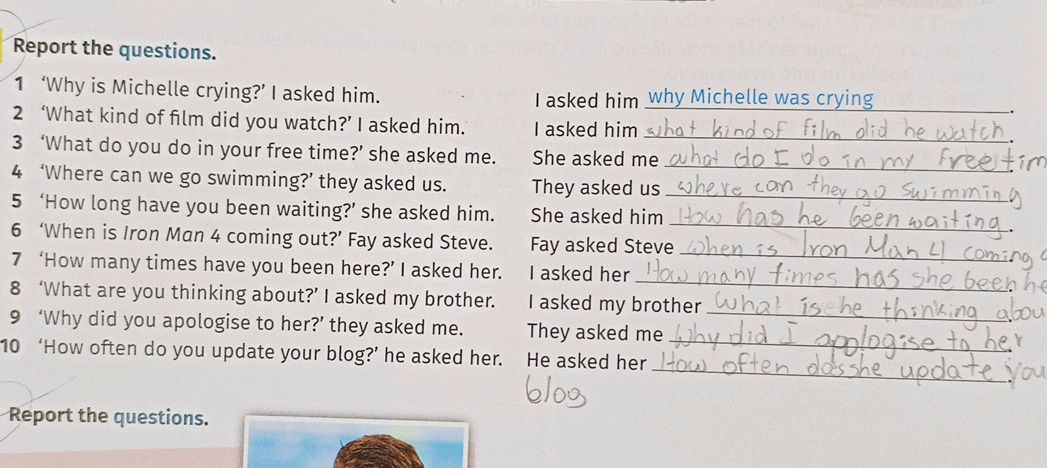 Report the questions.
1 ‘Why is Michelle crying?’ I asked him. I asked him why Michelle was crying.
2 ‘What kind of film did you watch?’ I asked him. I asked him what kind of film did he watch.
3 ‘What do you do in your free time?’ she asked me. She asked me what do I do in my free tim
4 ‘Where can we go swimming?’ they asked us. They asked us where can they go swimming
5 ‘How long have you been waiting?’ she asked him. She asked him How has he been waiting.
6 ‘When is Iron Man 4 coming out?’ Fay asked Steve. Fay asked Steve when is Iron Man 4 coming
7 ‘How many times have you been here?’ I asked her. I asked her How many times has she been he
8 ‘What are you thinking about?’ I asked my brother. I asked my brother what is he thinking abou
9 ‘Why did you apologise to her?’ they asked me. They asked me Why did I apologise to her.
10 ‘How often do you update your blog?’ he asked her. He asked her How often does she update you
blog
Report the questions.